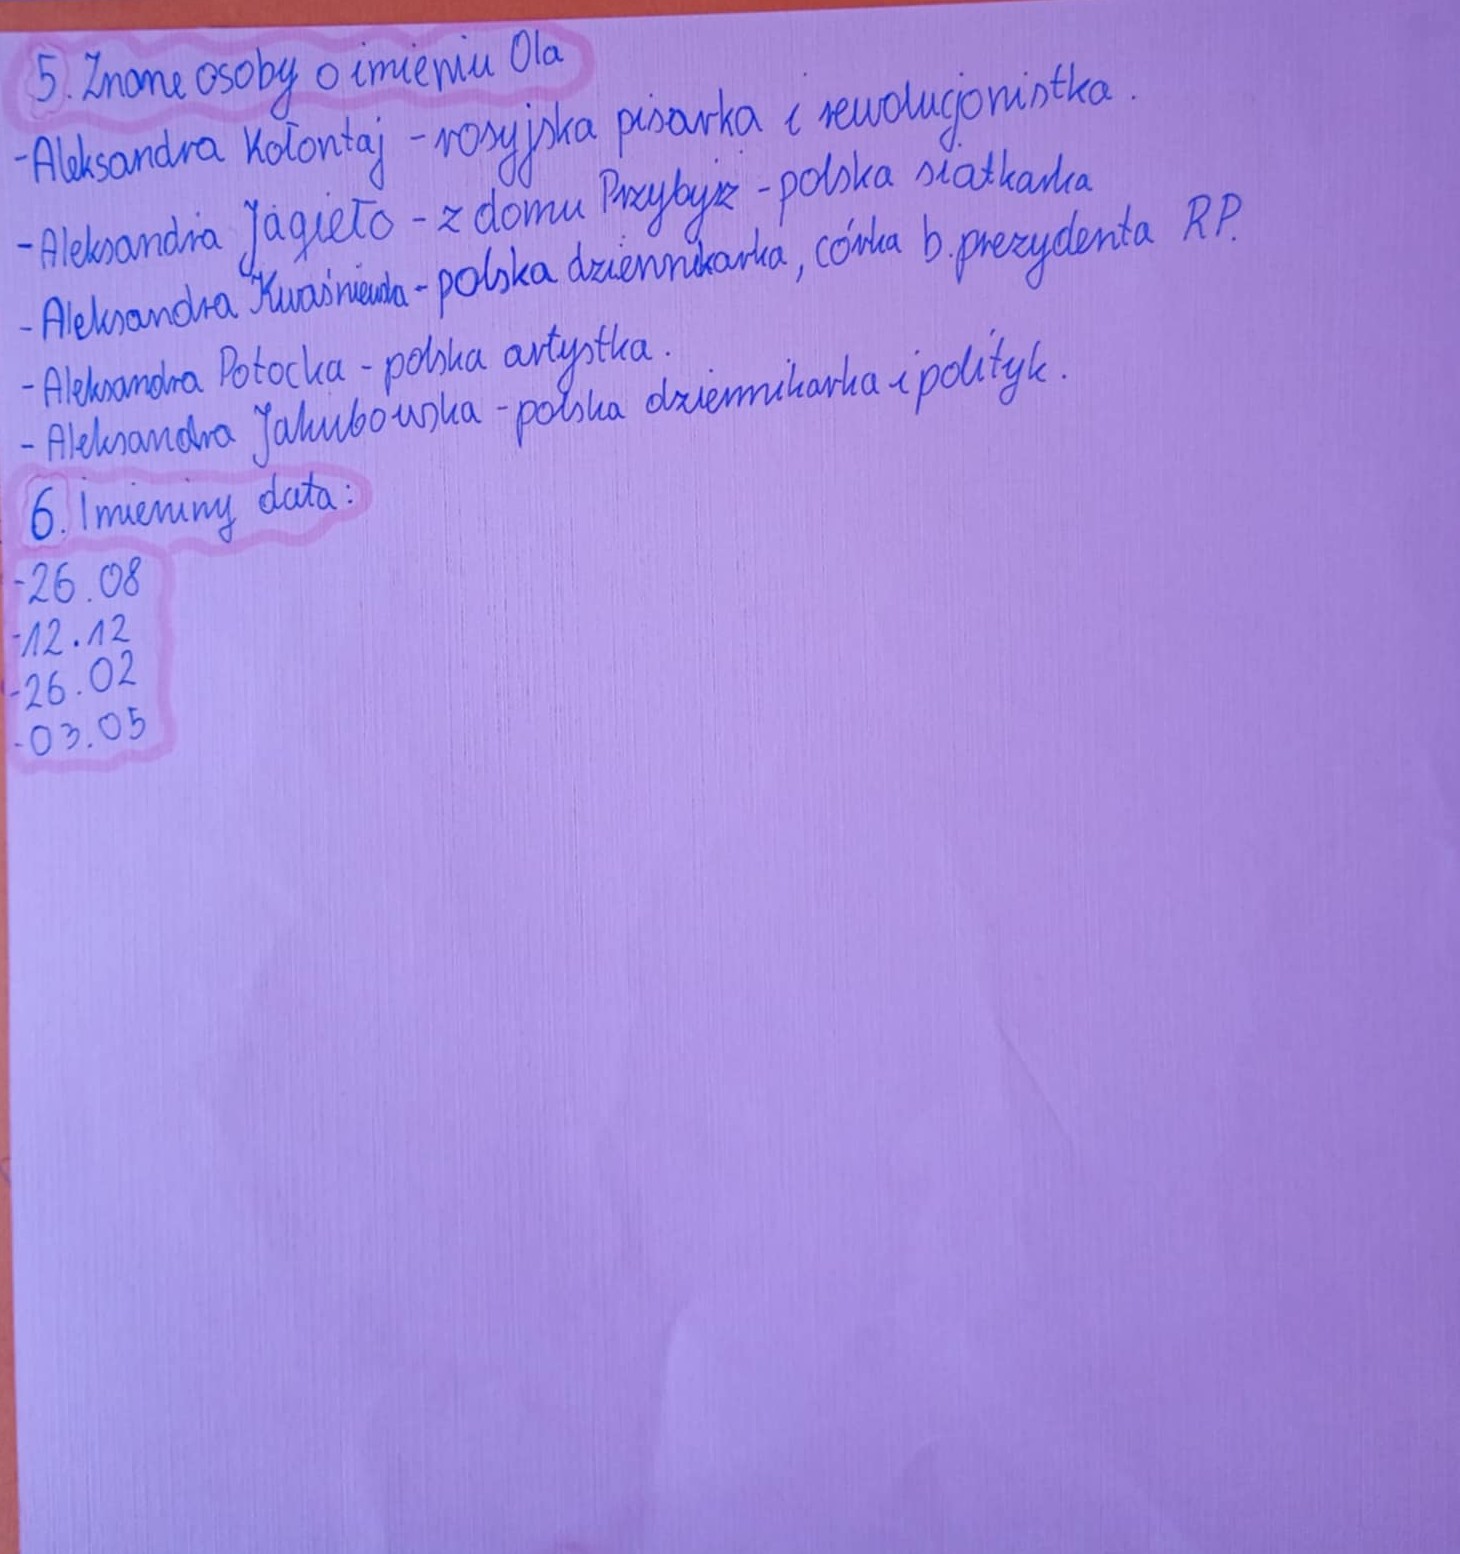 5. Znane osoby o imieniu Ola
- Aleksandra Kołontaj - rosyjska pisarka i rewolucjonistka.
- Aleksandra Jagieło - z domu Przybysz - polska siatkarka
- Aleksandra Kwaśniewska - polska dziennikarka, córka b. prezydenta RP.
- Aleksandra Potocka - polska artystka.
- Aleksandra Jakubowska - polska dziennikarka i polityk.
6. Imieniny data:
- 26.08
- 12.12
- 26.02
- 03.05